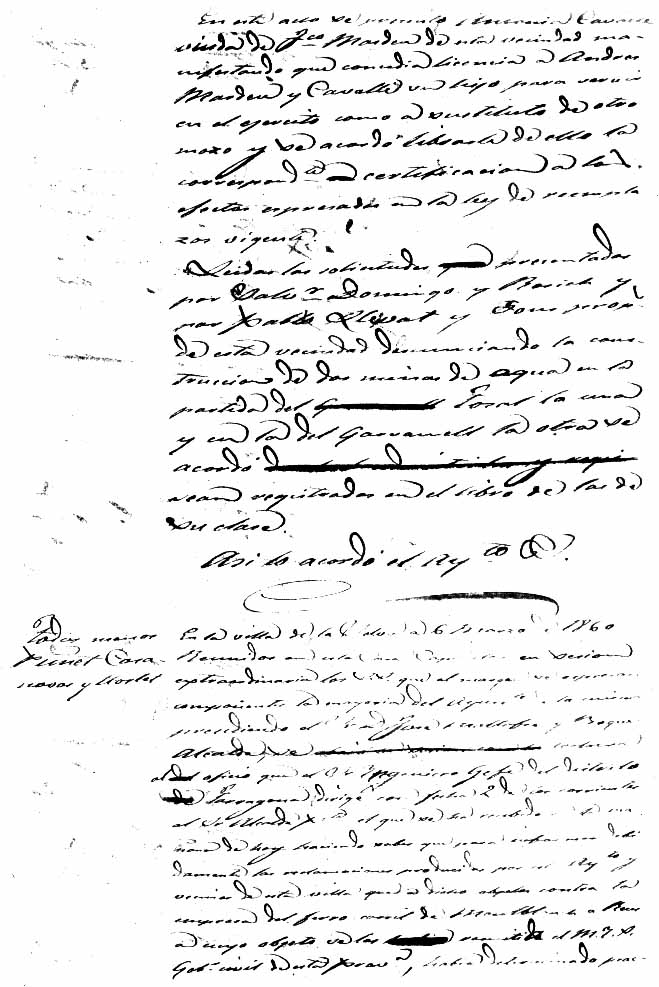 En este acto se presentó Antonia Cavallé
viuda de Fco Masdeu de esta vecindad ma-
nifestando que concedia licencia a Andres
Masdeu y Cavallé su hijo, para servir
en el ejercito como a sustituto de otro
mozo y se acordó librarle de ello la
correspondte certificacion a los
efectos espresados en la ley de reempla
zos vigente.
Leidas las solicitudes presentadas
por Salvr Domingo y Bosich y
por Pablo Llepat y Fons prop.
de esta vecindad denunciando la cons-
truccion de dos minas de agua en la
partida del Toral la una
y en la del Garranell la otra se
acordó
sean registradas en el libro de las de
su clase.
Asi lo acordó el Aycto
Todos menos
Piñol Casa
novas y Mortes
En la villa de la Selva a 6 Marzo 1860
Reunidos en esta Casa en sesion
extraordinaria los que al margen se espresan
componiente la mayoria del Ayuntto
presidiendo el José y Roque
Alcalde, se
al oficio que el Sr Ingeniero Gefe del distrito
de Tarragona dirige con fecha 2 de los corrientes
al Sr Alcalde el que se ha recibido la ma
ñana de hoy haciendo saber que para informar debi
damente las reclamaciones producidas por el Aycto y
vecinos de esta villa que a dicho objeto contra la
empresa del ferro carril de Montblanch a Reus
a cuyo objeto se las remitido el M. I. S.
Gobr civil de esta Prova, habia determinado prac-